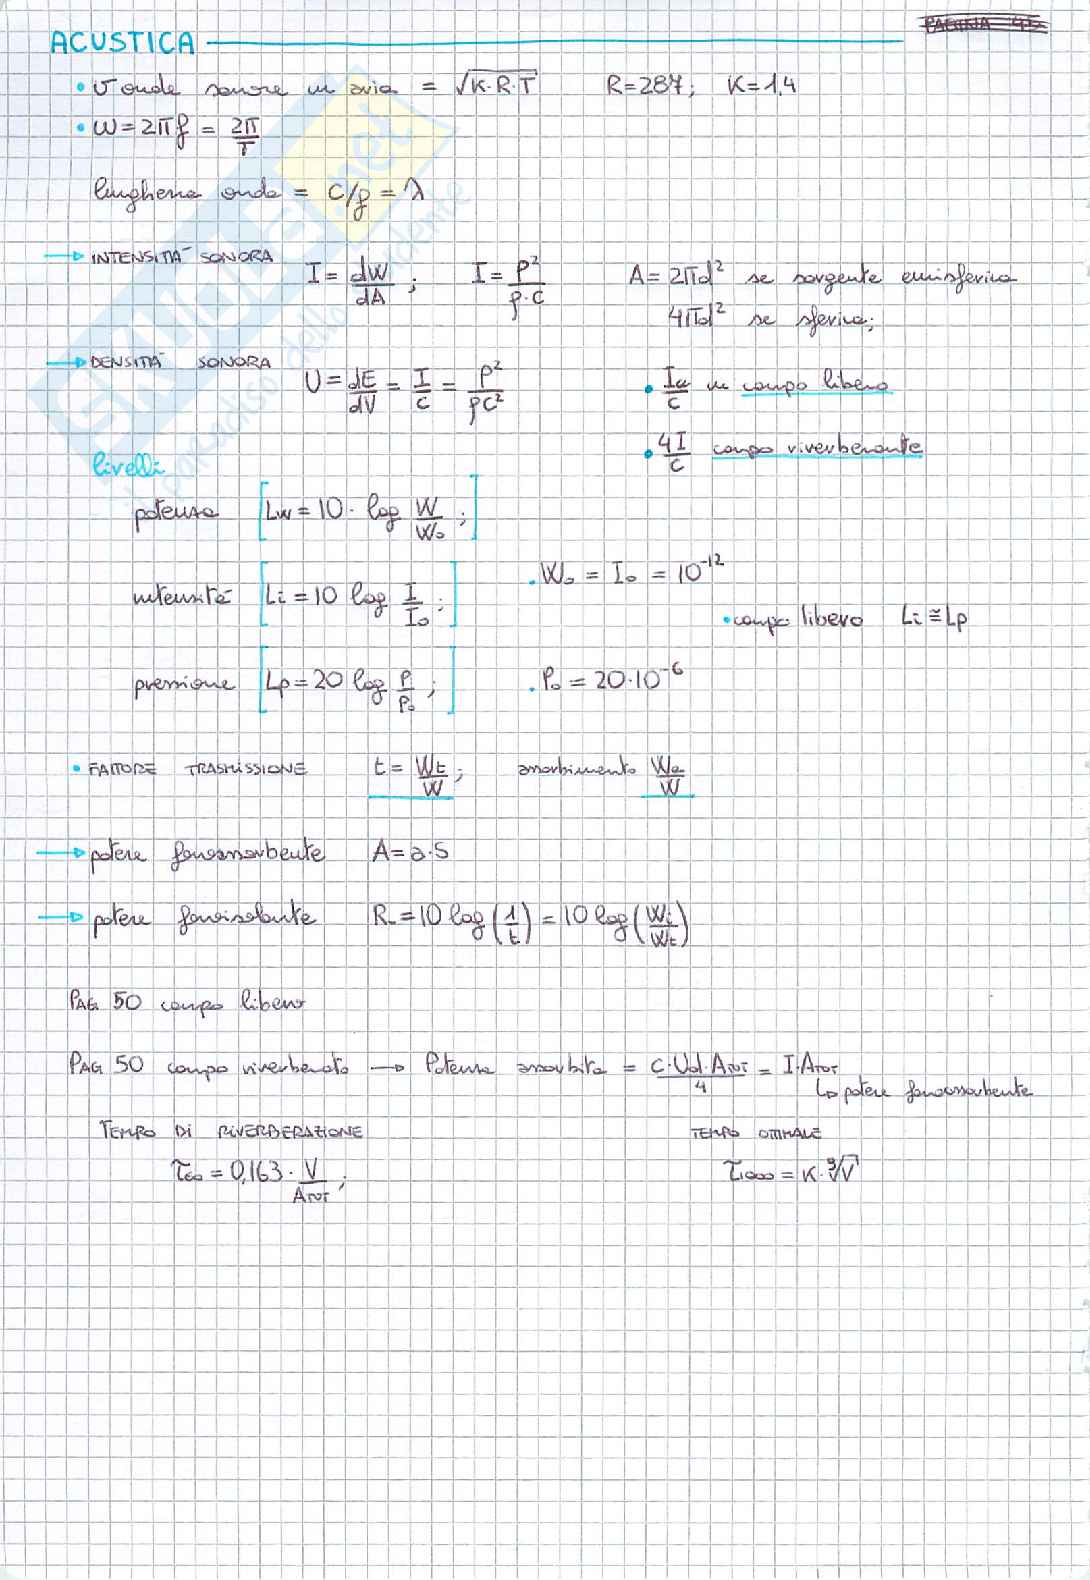 PAGINA 4
ACUSTICA
• v onde sonore in aria = √K·R·T R=287; K=1,4
• ω=2πf = 2π/T
lunghezza onda = c/f = λ
→ INTENSITÀ SONORA I = dW/dA ; I = P²/ρ·C A= 2πd² se sorgente emisferica
4πd² se sferica;
→ DENSITÀ SONORA U = dE/dV = I/C = P²/ρC² • /C in campo libero
• 4I/C campo riverberante
livelli
potenza [Lw = 10· log W/W₀ ;]
intensità [Li = 10 log I/I₀ ;] • W₀ = I₀ = 10⁻¹²
• campo libero Li ≅ Lp
pressione [Lp = 20 log P/P₀ ;] • P₀ = 20·10⁻⁶
• FATTORE TRASMISSIONE t = Wt/W ; assorbimento Wa/W
→ potere fonoassorbente A = a·S
→ potere fonoisolante R = 10 log(1/t) = 10 log(Wi/Wt)
PAG. 50 campo libero
PAG 50 campo riverberato → Potenza assorbita = C·Ud·ATOT/4 = I·ATOT
↳ potere fonoassorbente
TEMPO DI RIVERBERAZIONE TEMPO OTTIMALE
τ60 = 0,163 · V/ATOT ; τ1000 = K·⁹√V
SKUOLA.net
il paradiso dello studente